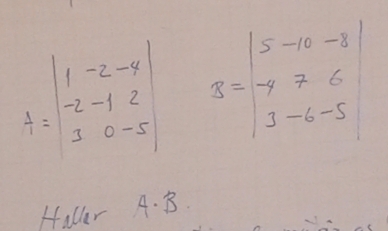 A = | 1 -2 -4 |
| -2 -1 2 |
| 3 0 -5 |
B = | 5 -10 -8 |
| -4 7 6 |
| 3 -6 -5 |
Hallar A·B.